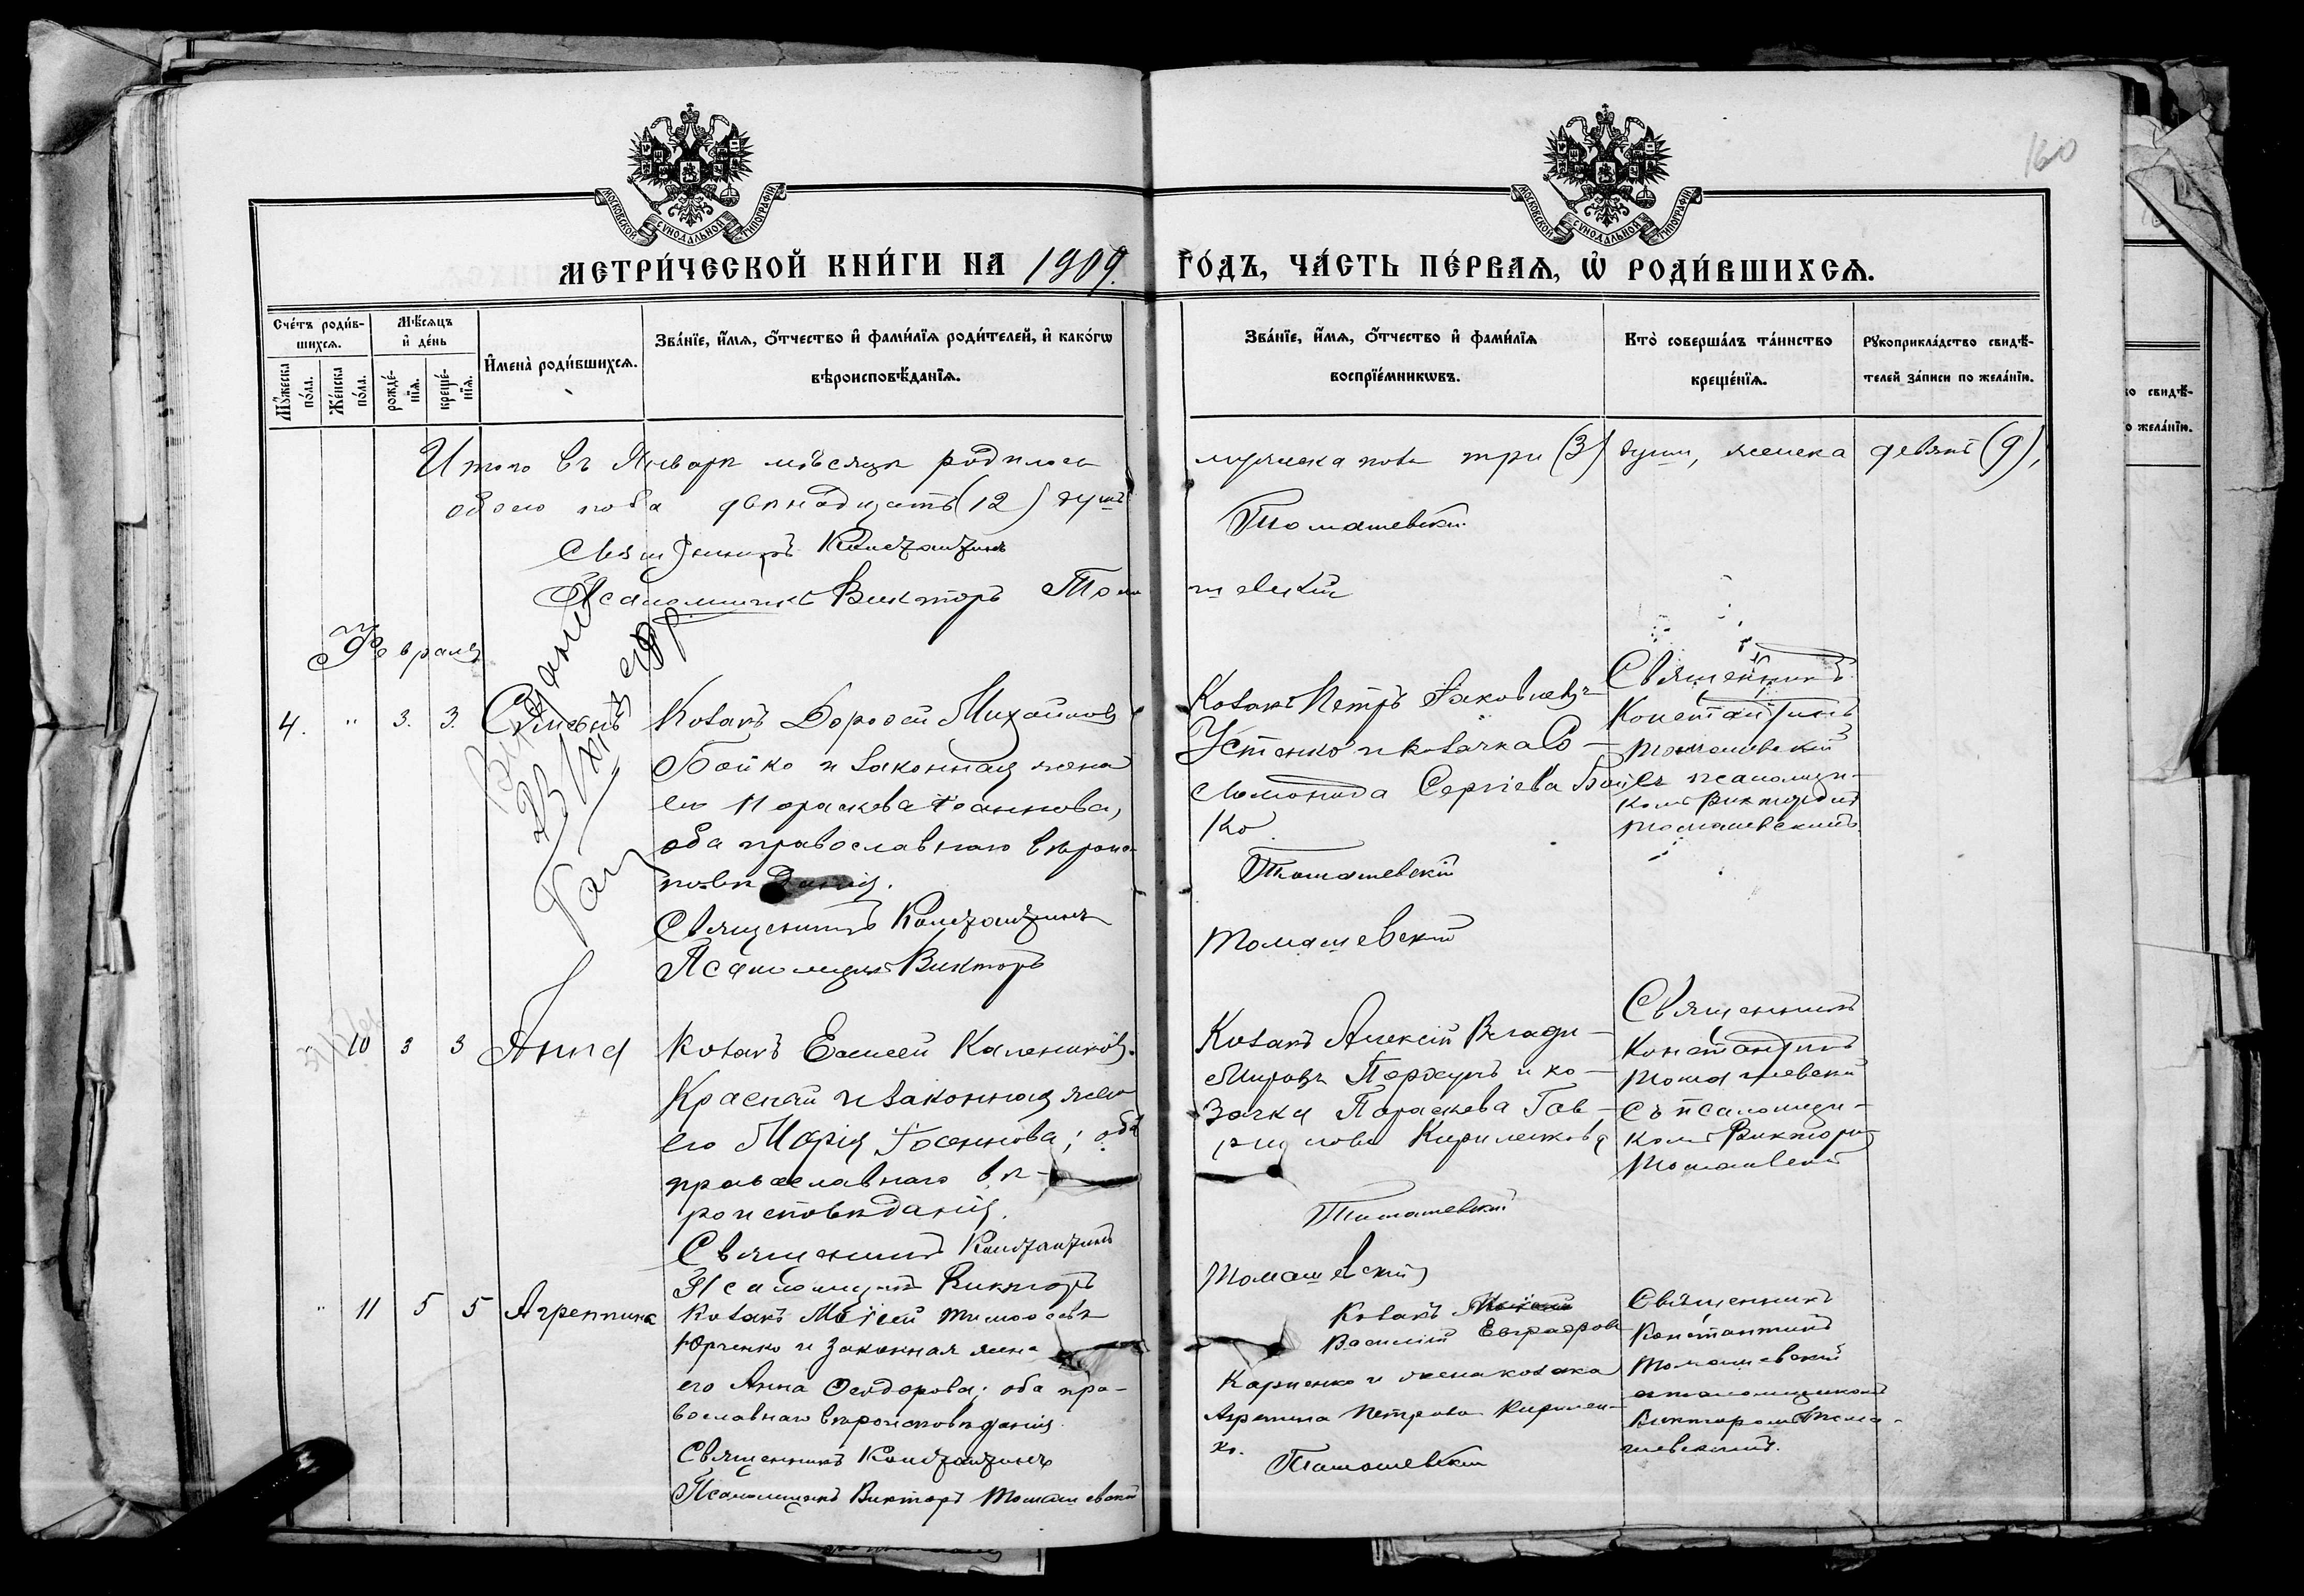 160
МОСКОВСКОЙ СУНОДАЛЬНОЙ ТИПОГРАФІИ
МОСКОВСКОЙ СУНОДАЛЬНОЙ ТИПОГРАФІИ
МЕТРИ́ЧЕСКОЙ КНИ́ГИ НА 1909. ГО́ДЪ, ЧА́СТЬ ПЕ́РВАѦ, Ѡ҆ РОДИ́ВШИХСѦ.
Сче́тъ роди́в-
шихсѧ.
Мꙋ́жеска по́ла.
Же́нска по́ла.
Мѣ́сѧцъ
и҆ де́нь
рожде́-
нїѧ.
креще́-
нїѧ.
И҆мена̀ роди́вшихсѧ.
Зва́нїе, и҆́мѧ, ѻ҆́тчество и҆ фами́лїѧ роди́телей, и҆ како́гѡ
вѣроисповѣ́данїѧ.
Зва́нїе, и҆́мѧ, ѻ҆́тчество и҆ фами́лїѧ
воспрїе́мникѡвъ.
Кто̀ соверша́лъ та́инство
креще́нїѧ.
Рꙋкоприкла́дство свидѣ́-
телей за́писи по жела́нїю.
Итого въ Январѣ мѣсяцѣ родилось мужеска пола три (3) души, женска девять (9),
обоего пола двѣнадцать (12) душъ
Священникъ Константинъ Томашевскій
Псаломщикъ Викторъ Томашевскій
Февраля
4. " 3. 3. Симеонъ
Козакъ Дороѳей Михайловъ
Бойко и законная жена
его Параскева Іоаннова,
оба православнаго вѣроис-
повѣданія.
Священникъ Константинъ
Псаломщикъ Викторъ
Козакъ Петръ Іаковлевъ
Устенко и козачка Со-
ломонида Сергіева Бой-
ко
Томашевскій
Томашевскій
Священникъ
Константинъ
Томашевскій
съ псаломщи-
комъ Викторомъ
Томашевскимъ.
" 10 3 3 Анна
Козакъ Елисей
Красный и законная жена
его Марія Іоаннова; оба
православнаго вѣ-
роисповѣданія.
Священникъ Константинъ
Псаломщикъ Викторъ
Козакъ Алексій Влади-
міровъ и ко-
зачка Параскева Гав-
рилова Кириленкова
Томашевскій
Томашевскій
Священникъ
Константинъ
Томашевскій
съ псаломщи-
комъ Викторомъ
Томашевскимъ
" 11 5 5 Агриппина
Козакъ Моѵсей Тимоѳеевъ
Юрченко и законная жена
его Анна Ѳеодорова; оба пра-
вославнаго вѣроисповѣданія.
Священникъ Константинъ
Псаломщикъ Викторъ Томашевскій
Козакъ
Василій Евграфовъ
Карпенко и жена козака
Агрипина Петрова Кирилен-
ко.
Томашевскій
Священникъ
Константинъ
Томашевскій
съ псаломщикомъ
Викторомъ Тома-
шевскимъ.